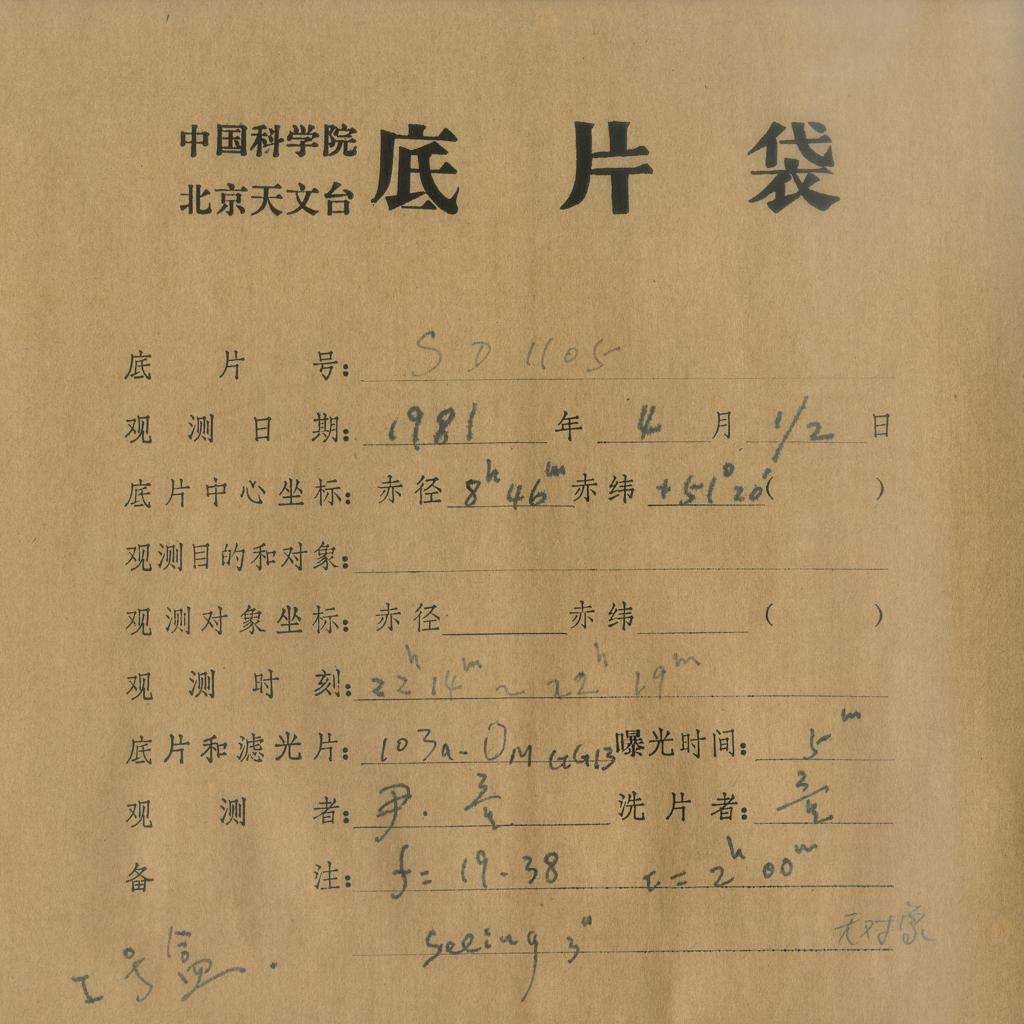 中国科学院
北京天文台
底片袋
底片号: SD 1105
观测日期: 1981 年 4 月 1/2 日
底片中心坐标: 赤径 8h 46m 赤纬 +51° 20′ ( )
观测目的和对象:
观测对象坐标: 赤径 赤纬 ( )
观测时刻: 22h 14m ~ 22h 19m
底片和滤光片: 103a-O M GG13 曝光时间: 5m
观测者: 尹. 洗片者:
备注: f = 19.38 t = 2h 00m
seeing 3″ 无对象
I号盒.